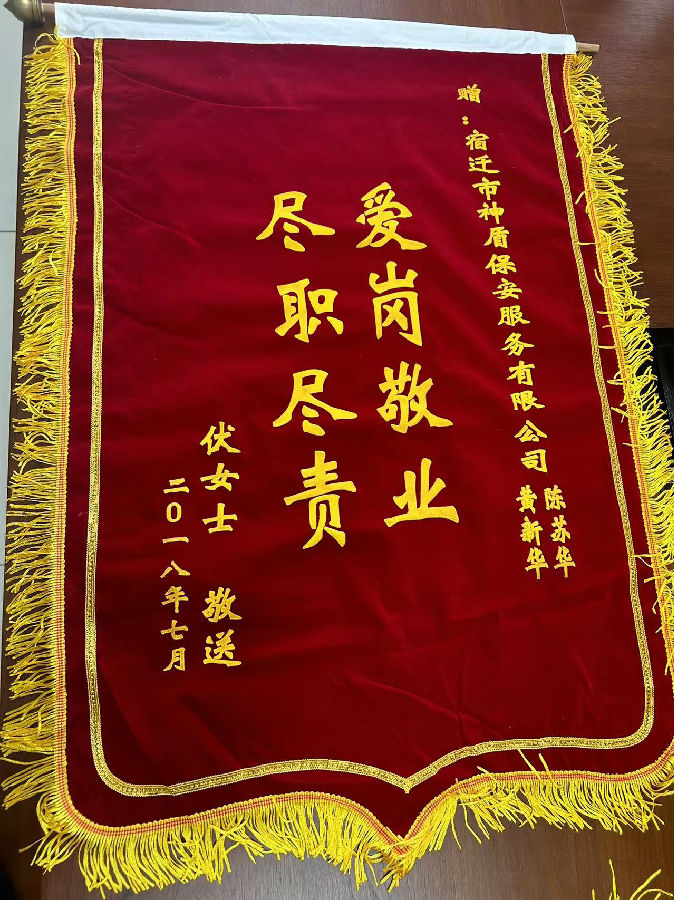 赠：宿迁市神盾保安服务有限公司
陈苏华
黄新华
爱岗敬业
尽职尽责
伏女士 敬送
二〇一八年七月